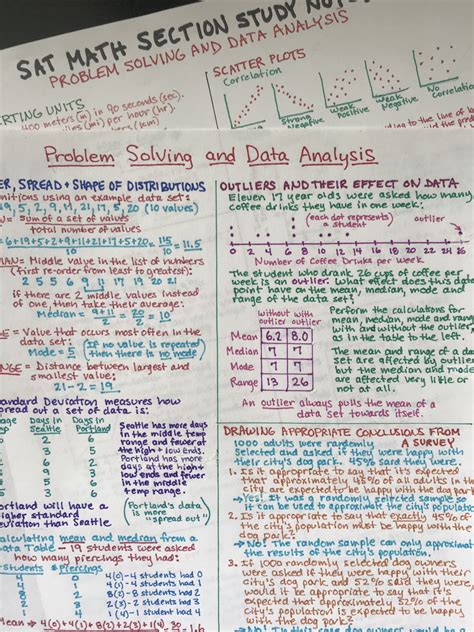 SAT MATH SECTION STUDY
PROBLEM SOLVING AND DATA ANALYSIS
SCATTER PLOTS
Correlation
Strong Negative
Weak Positive
Weak Negative
No Correlation
RTING UNITS
400 meters (m) in 90 seconds (sec).
(mi) per hour (hr).
(km)
Problem Solving and Data Analysis
ER, SPREAD + SHAPE OF DISTRIBUTIONS
nitions using an example data set:
19, 5, 2, 9, 11, 21, 17, 5, 20 (10 values)
= sum of a set of values
total number of values
6+19+5+2+9+11+21+17+5+20 = 115 = 11.5
10 10
IAN = Middle value in the list of numbers
(first re-order from least to greatest):
2 5 5 6 9 11 17 19 20 21
if there are 2 middle values instead
of one, then take their average:
Median = 9+11 = 20 = 10
2 2
= Value that occurs most often in the
data set:
Mode = 5
(If no value is repeated
then there is no mode)
NGE = Distance between largest and
smallest value:
21-2 = 19
andard Deviation measures how
pread out a set of data is:
Days in Seattle
Days in Portland
2 6
Seattle has more days
in the middle temp
range and fewer of
the high + low ends.
Portland has more
days at the high +
low ends and fewer
in the middle
temp range.
ortland will have a
higher standard
eviation than Seattle
(Portland's data
is more
"spread out")
alculating mean and median from a
ata Table - 19 students were asked
how many piercings they had:
Students # Piercings
4 0 4(0) - 4 students had 0
4(1) - 4 students had 1
8(2) - 8 students had 2
2(3) - 2 students had 3
1(4) - 1 student had 4
Mean → 4(0)+4(1)+8(2)+2(3)+1(4) = 30 = 1.6
OUTLIERS AND THEIR EFFECT ON DATA
Eleven 17 year olds were asked how many
coffee drinks they have in one week:
(each dot represents
a student)
outlier
0 2 4 6 8 10 12 14 16 18 20 22 24 26
Number of Coffee Drinks per week
The student who drank 26 cups of coffee per
week is an outlier. What effect does this data
point have on the mean, median, mode and
range of the data set?
without outlier
with outlier
Mean 6.2 8.0
Median 7 7
Mode 7 7
Range 13 26
Perform the calculations for
mean, median, mode and range
with and without the outlier,
as in the table to the left.
The mean and range of a data
set are affected by outliers
but the median and mode
are affected very little or
not at all.
An outlier always pulls the mean of a
data set towards itself.
DRAWING APPROPRIATE CONCLUSIONS FROM
A SURVEY
1000 adults were randomly
selected and asked if they were happy with
their city's dog park. 45% said they were.
1. Is it appropriate to say that it's expected
that approximately 45% of all adults in the
city are expected to be happy with the dog park?
→ Yes! It was a randomly selected sample,
it can be used to approximate the city's population
2. Is it appropriate to say that exactly 45% of
the city's population must be happy with the
dog park?
→ No! The random sample can only approximate
the results of the city's population.
3. If 1000 randomly selected dog owners
were asked if they were happy with their
city's dog park and 52% said they were,
would it be appropriate to say that it's
expected that approximately 52% of the
city's population is expected to be happy
with the dog park?